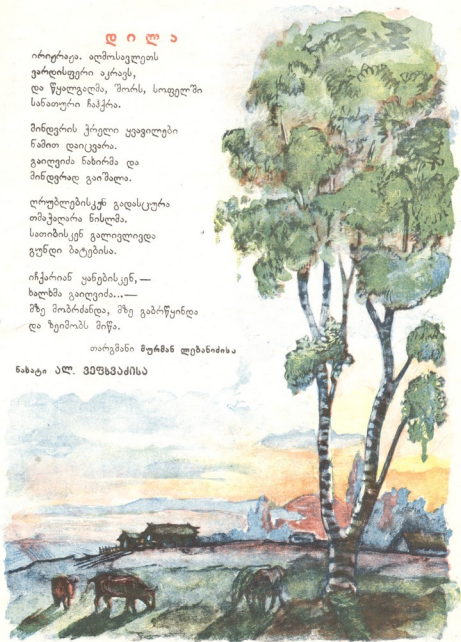 დილა
ირიჟრაჟა. აღმოსავლეთს
ვარდისფერი აკრავს,
და წყალგაღმა, შორს, სოფელში
სანათური ჩაჰქრა.
მინდვრის ჭრელი ყვავილები
ნამით დაიცვარა.
გაიღვიძა ნახირმა და
მინდვრად გაიშალა.
ღრუბლებისკენ გადასცურა
თმაჭაღარა ნისლმა.
სათიბისკენ გალივლივდა
გუნდი ბატებისა.
იჩქარიან ყანებისკენ,—
ხალხმა გაიღვიძა...—
მზე მობრძანდა, მზე გაბრწყინდა
და ზეიმობს მიწა.
თარგმანი მურმან ლებანიძისა
ნახატი ალ. ვეფხვაძისა